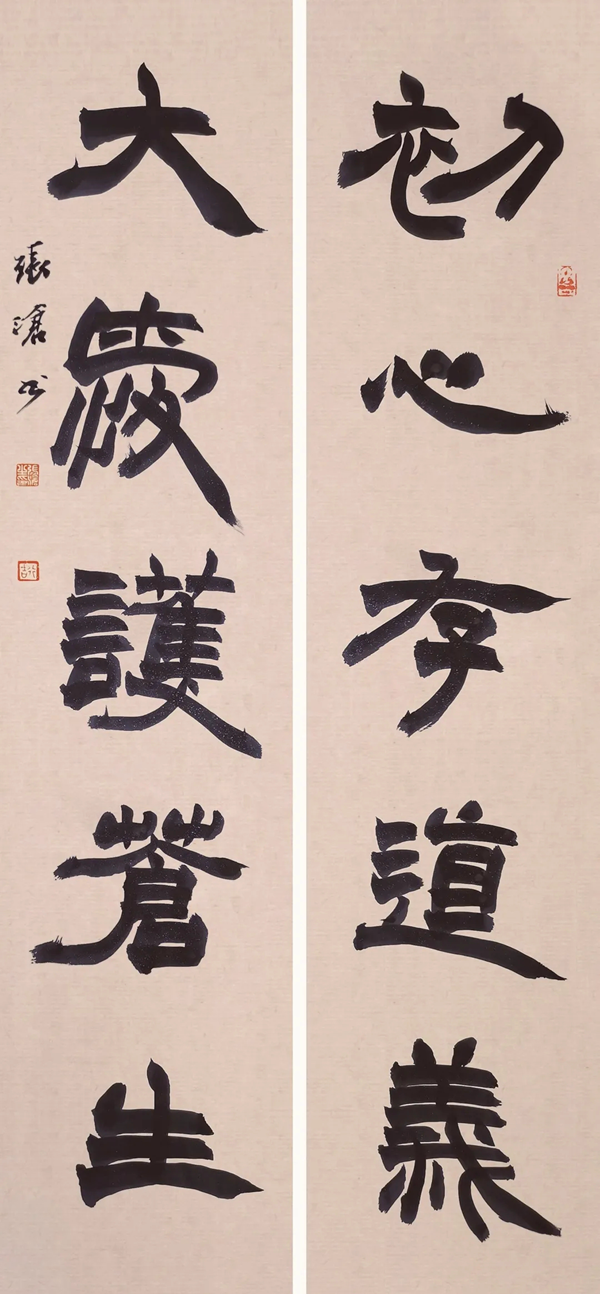 初心存道義
大愛護蒼生
張滄书